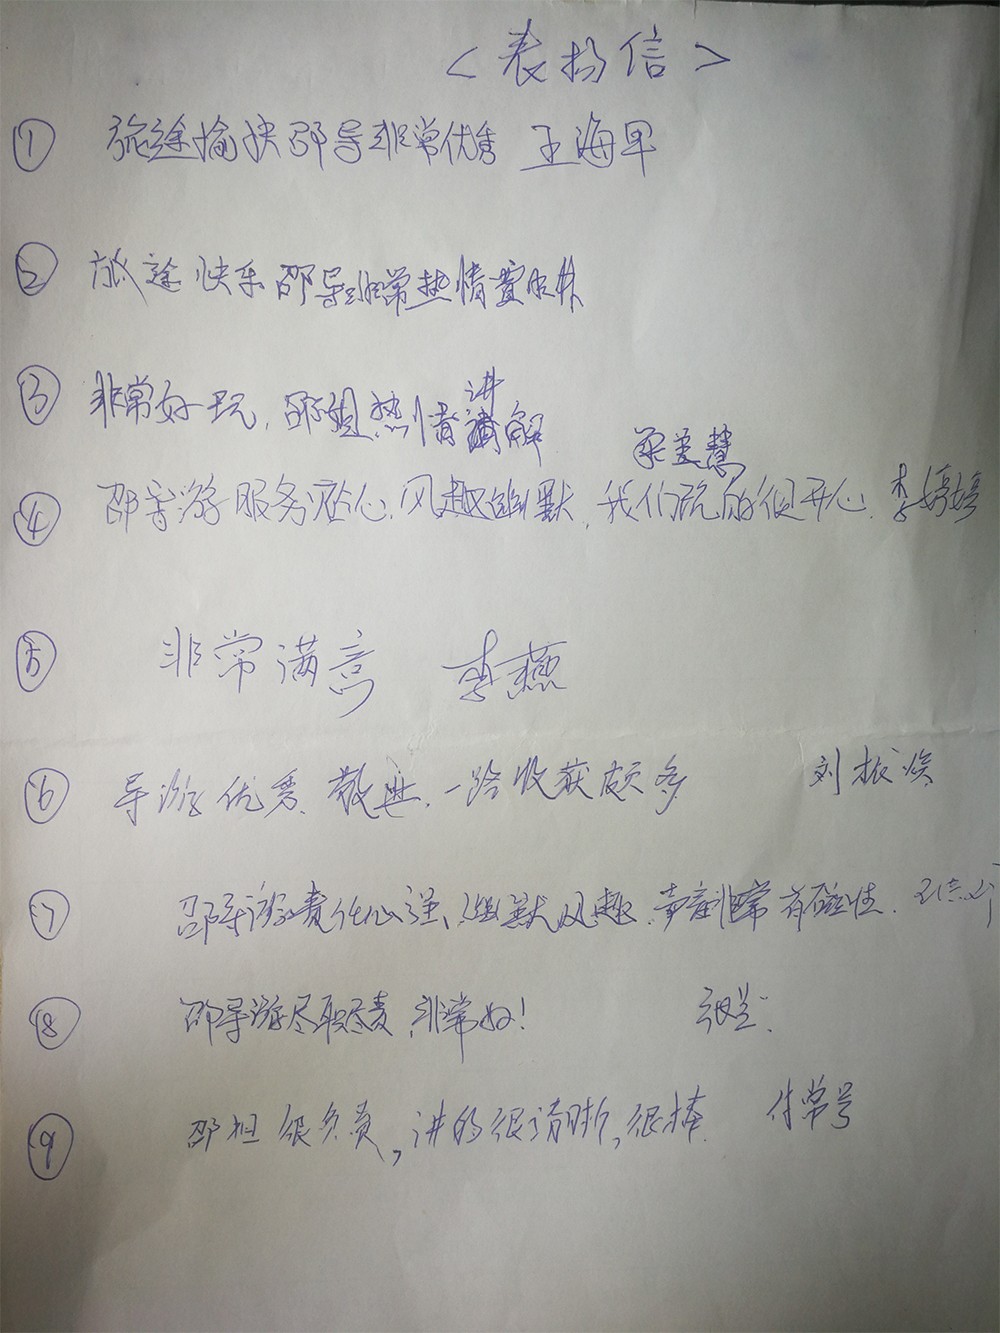 <表扬信>
① 旅途愉快邵导非常优秀 王海早
② 旅途快乐邵导非常热情
③ 非常好玩,邵姐热情讲解
梁美慧
④ 邵导游服务贴心,风趣幽默,我们玩的很开心. 李婷婷
⑤ 非常满意 李燕
⑥ 导游优秀、敬业,一路收获颇多 刘振
⑦ 邵导游责任心强、幽默风趣,声音非常有磁性.
⑧ 邵导游尽职尽责,非常好!
⑨ 邵姐很负责,讲的很清晰,很棒.